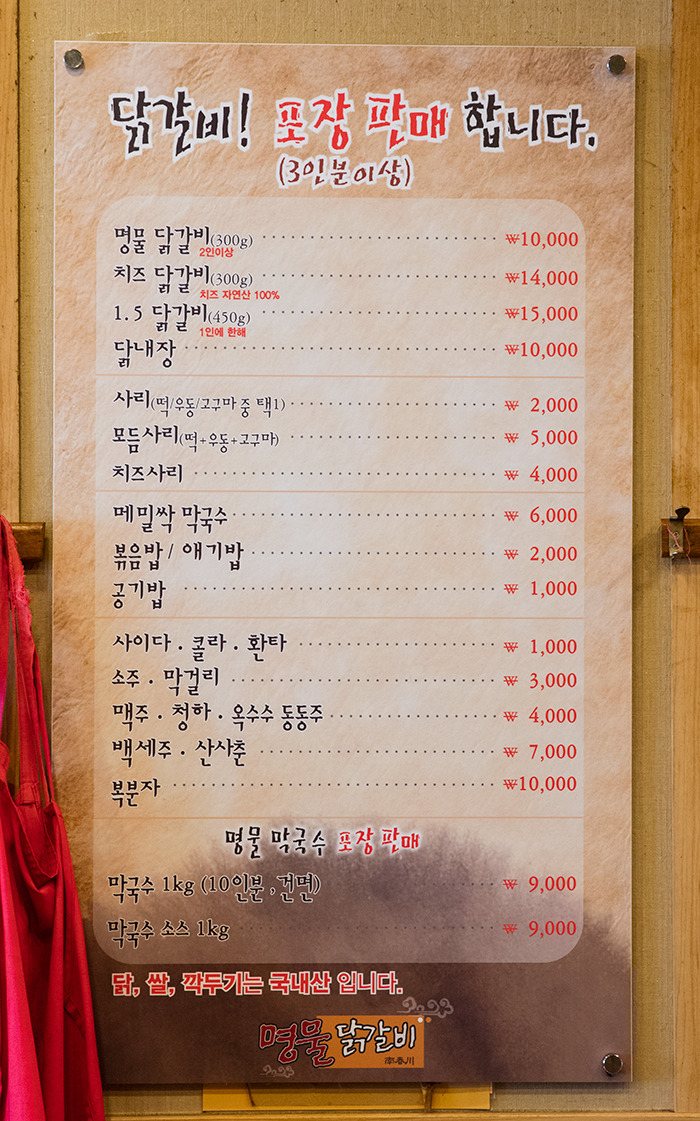 닭갈비! 포장 판매 합니다.
(3인분이상)
명물 닭갈비(300g) ₩10,000
2인이상
치즈 닭갈비(300g) ₩14,000
치즈 자연산 100%
1.5 닭갈비(450g) ₩15,000
1인에 한해
닭내장 ₩10,000
사리(떡/우동/고구마 중 택1) ₩ 2,000
모듬사리(떡+우동+고구마) ₩ 5,000
치즈사리 ₩ 4,000
메밀싹 막국수 ₩ 6,000
볶음밥 / 애기밥 ₩ 2,000
공기밥 ₩ 1,000
사이다 · 콜라 · 환타 ₩ 1,000
소주 · 막걸리 ₩ 3,000
맥주 · 청하 · 옥수수 동동주 ₩ 4,000
백세주 · 산사춘 ₩ 7,000
복분자 ₩10,000
명물 막국수 포장 판매
막국수 1kg (10인분, 건면) ₩ 9,000
막국수 소스 1kg ₩ 9,000
닭, 쌀, 깍두기는 국내산 입니다.
명물 닭갈비